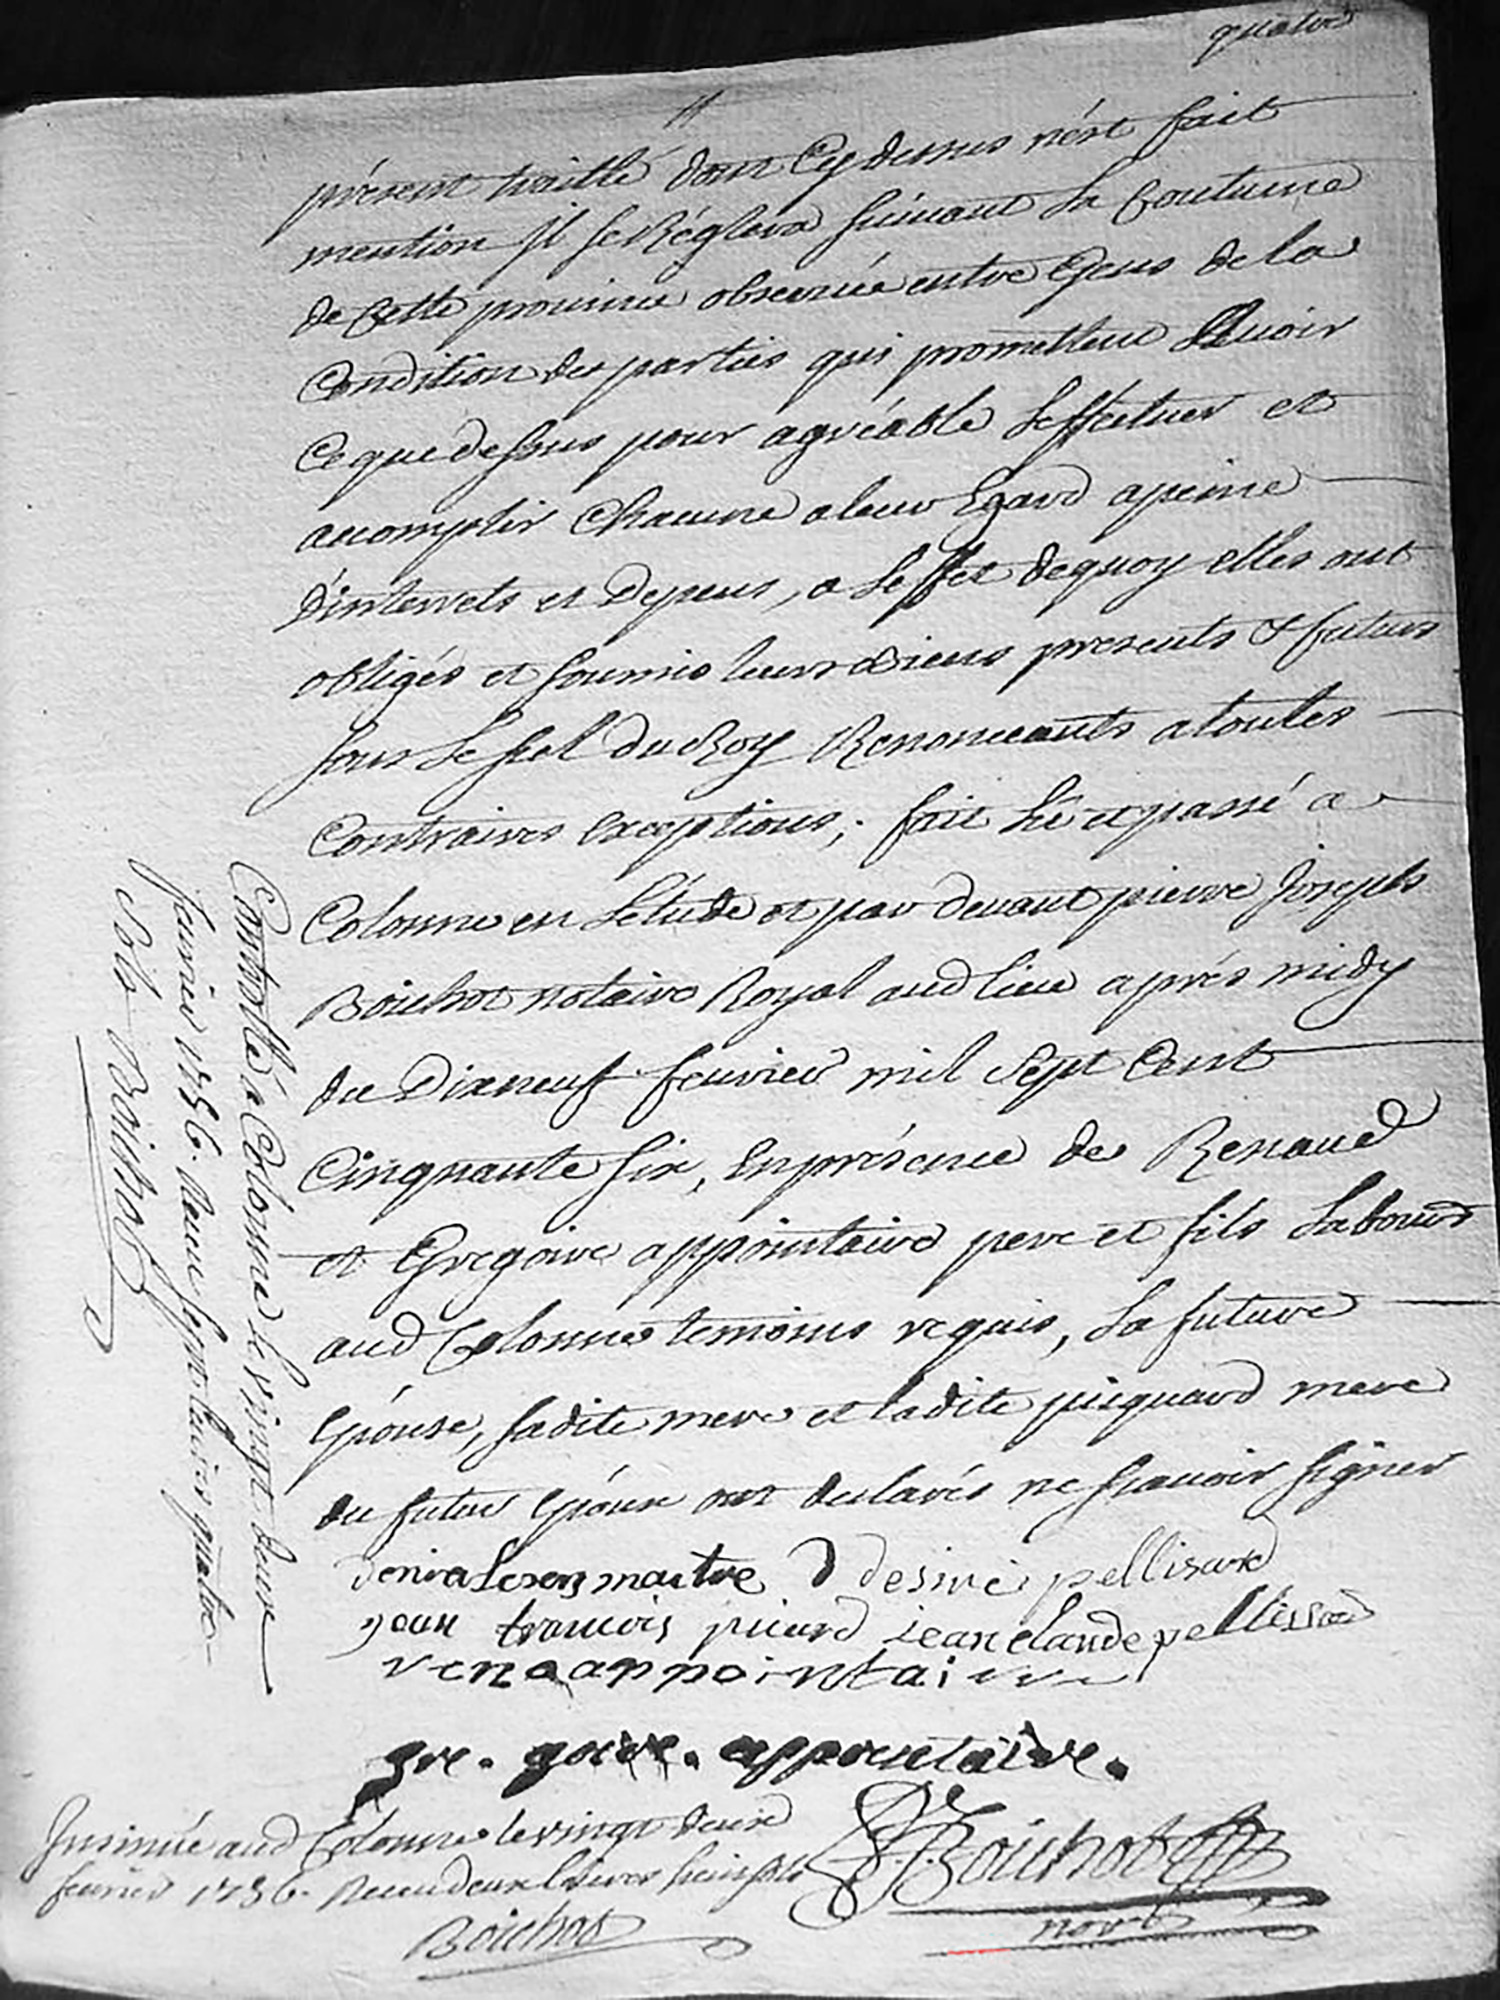 quatre
présent traitté dont Cy dessus n'est fait
mention Il se Réglera suivant la Coutume
de Cette province observée entre Gens de la
Condition des parties qui promettent d'avoir
Ce que dessus pour agréable L'efféctuer et
accomplir Chacune a leur Egard apeine
d'interrets et depens, a L'effet dequoy elles ont
obligés et soumis leurs biens presents & futurs
sous le scel du Roy Renonceants a toutes
Contraires Exceptions; fait lû et passé a
Colonne en L'etude et par devant pierre Joseph
Boichot notaire Royal aud lieu après midy
du Dix neuf fevrier mil Sept Cent
Cinquante six, En présence de Renaud
et Gregoire appointaire pere et fils Labours
aud Colonne temoins requis, La future
Epouse, sadite mere et ladite piquard mere
du futur Epoux ont declarés ne sçavoir signer
maitre desiré pellisard
jean francois picard jean claude pellissard
rena appointaire
gre. goire. appointaire.
Boichot
nore
Insinué aud Colonne le vingt deux
fevrier 1756. Receu deux Livres huit sols
Boichot
Controllé a Colonne le vingt deux
fevrier 1756. Receu sept livres quatre
sols Boichot